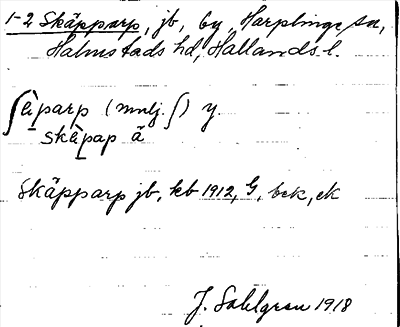 1-2 Skäpparp, jb, by, Harplinge sn,
Halmstads hd, Hallands l.
ʃè̞parp (mulj. ʃ) y.
skè̞pap ä
Skäpparp jb, kb 1912, G, bek, ek
J. Sahlgren 1918